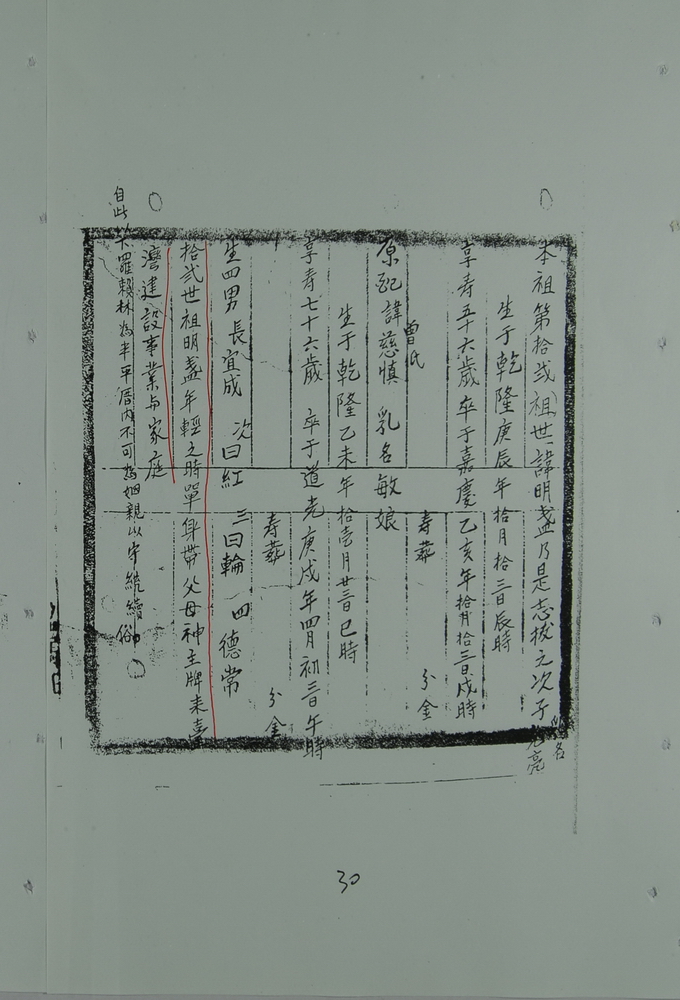 本祖第拾弍祖世諱明盞乃是志拔之次子
名 亮
生于乾隆庚辰年拾月拾三日辰時
享寿五十六歲 卒于嘉慶乙亥年拾月拾三日戌時
寿葬 分金
曾氏
原配諱慈慎 乳名敏娘
生于乾隆乙未年拾壱月廿三日巳時
享寿七十六歲 卒于道光庚戌年四月初三日午時
寿葬 分金
生四男 長宜成 次曰紅 三曰輪 四德常
拾弍世祖明盞年輕之時單身帶父母神主牌來臺
灣建設事業与家庭
自此以下羅賴林為半平厝內不可為姻親以守統續俗
30